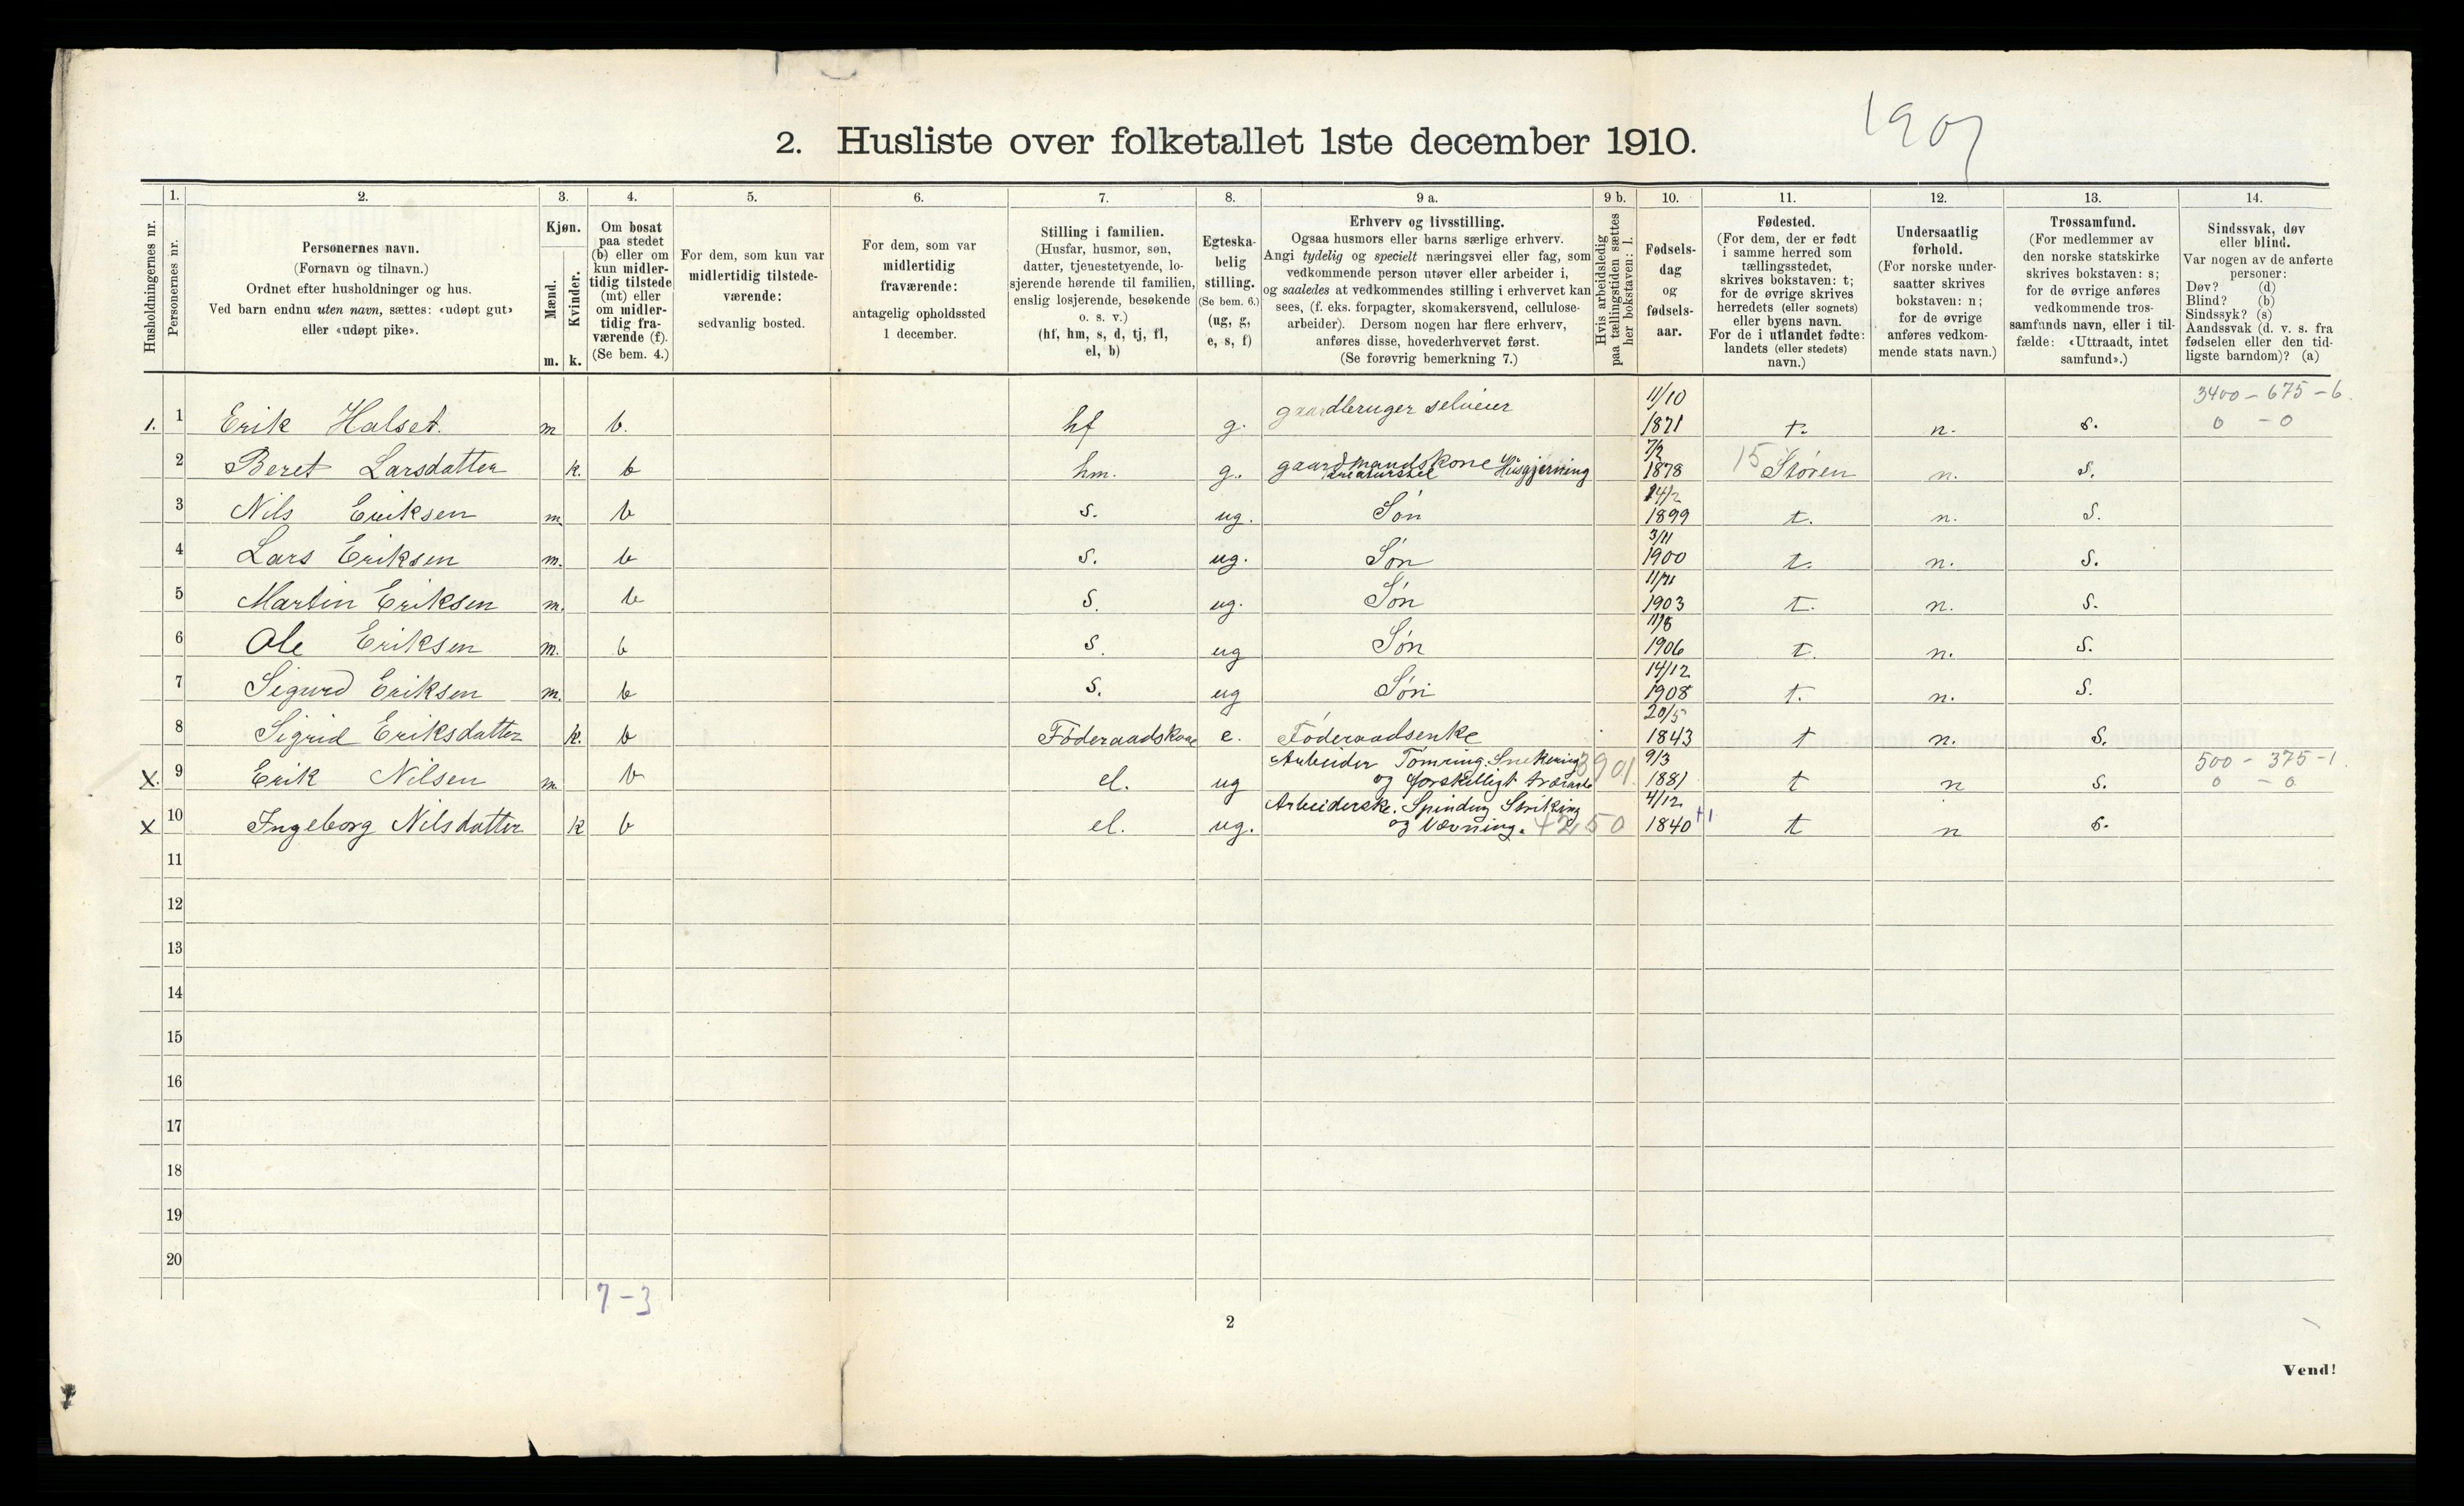 1907
2. Husliste over folketallet 1ste december 1910.
Husholdningernes nr.
1. Personernes nr.
2. Personernes navn.
(Fornavn og tilnavn.)
Ordnet efter husholdninger og hus.
Ved barn endnu uten navn, sættes: «udøpt gut»
eller «udøpt pike».
3. Kjøn.
Mænd. m.
Kvinder. k.
4. Om bosat
paa stedet
(b) eller om
kun midler-
tidig tilstede
(mt) eller
om midler-
tidig fra-
værende (f).
(Se bem. 4.)
5. For dem, som kun var
midlertidig tilstede-
værende:
sedvanlig bosted.
6. For dem, som var
midlertidig
fraværende:
antagelig opholdssted
1 december.
7. Stilling i familien.
(Husfar, husmor, søn,
datter, tjenestetyende, lo-
sjerende hørende til familien,
enslig losjerende, besøkende
o. s. v.)
(hf, hm, s, d, tj, fl,
el, b)
8. Egteska-
belig
stilling.
(Se bem. 6.)
(ug, g,
e, s, f)
9 a. Erhverv og livsstilling.
Ogsaa husmors eller barns særlige erhverv.
Angi tydelig og specielt næringsvei eller fag, som
vedkommende person utøver eller arbeider i,
og saaledes at vedkommendes stilling i erhvervet kan
sees, (f. eks. forpagter, skomakersvend, cellulose-
arbeider). Dersom nogen har flere erhverv,
anføres disse, hovederhvervet først.
(Se forøvrig bemerkning 7.)
9 b. Hvis arbeidsledig
paa tællingstiden sættes
her bokstaven: l.
10. Fødsels-
dag
og
fødsels-
aar.
11. Fødested.
(For dem, der er født
i samme herred som
tællingsstedet,
skrives bokstaven: t;
for de øvrige skrives
herredets (eller sognets)
eller byens navn.
For de i utlandet fødte:
landets (eller stedets)
navn.)
12. Undersaatlig
forhold.
(For norske under-
saatter skrives
bokstaven: n;
for de øvrige
anføres vedkom-
mende stats navn.)
13. Trossamfund.
(For medlemmer av
den norske statskirke
skrives bokstaven: s;
for de øvrige anføres
vedkommende tros-
samfunds navn, eller i til-
fælde: «Uttraadt, intet
samfund».)
14. Sindssvak, døv
eller blind.
Var nogen av de anførte
personer:
Døv? (d)
Blind? (b)
Sindssyk? (s)
Aandssvak (d. v. s. fra
fødselen eller den tid-
ligste barndom)? (a)
1. 1 Erik Halset. m b. hf g. gaardbruger selveier 11/10 1871 t. n. s. 3400 - 675 - 6. 0 - 0
2 Beret Larsdatter k. b hm. g. gaardmandskone Husgjerning 7/2 1878 15 Støren n. s.
3 Nils Eriksen m b s. ug. Søn 14/2 1899 t. n. s.
4 Lars Eriksen m. b s. ug. Søn 3/11 1900 t. n. s.
5 Martin Eriksen m. b s. ug. Søn 1903 t. n. s.
6 Ole Eriksen m. b s. ug Søn 1906 t. n. s.
7 Sigurd Eriksen m. b s. ug Søn 14/12 1908 t. n. s.
8 Sigrid Eriksdatter k. b Föderaadskone e. Föderaadsenke 20/5 1843 t n. s.
X. 9 Erik Nilsen m. b el. ug Arbeider Tömring. Snekering og forskelligt 3901 9/3 1881 t n s. 500 - 375 - 1. 0 - 0
X 10 Ingeborg Nilsdatter k b el. ug. Arbeiderske. Spinding Striking og Vævning. 4250 4/12 1840 +1 t n s.
11
12
13
14
15
16
17
18
19
20
7-3
2
Vend!